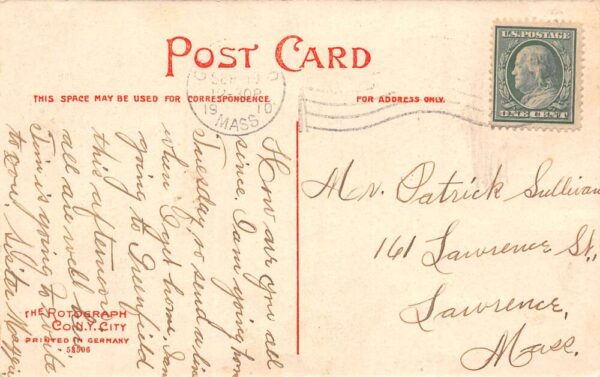 POST CARD
U.S. POSTAGE
ONE CENT
SEP 19
12-30P
1910
MASS.
THIS SPACE MAY BE USED FOR CORRESPONDENCE
FOR ADDRESS ONLY.
How are you all
since. I am going home
Tuesday, so send a line
when I get home. I am
going to Greenfield
this afternoon
all are well here
Tim is going to write
to you. Sister Maggie
Mr. Patrick Sullivan
161 Lawrence St.,
Lawrence,
Mass.
THE ROTOGRAPH
CO. N.Y. CITY
PRINTED IN GERMANY